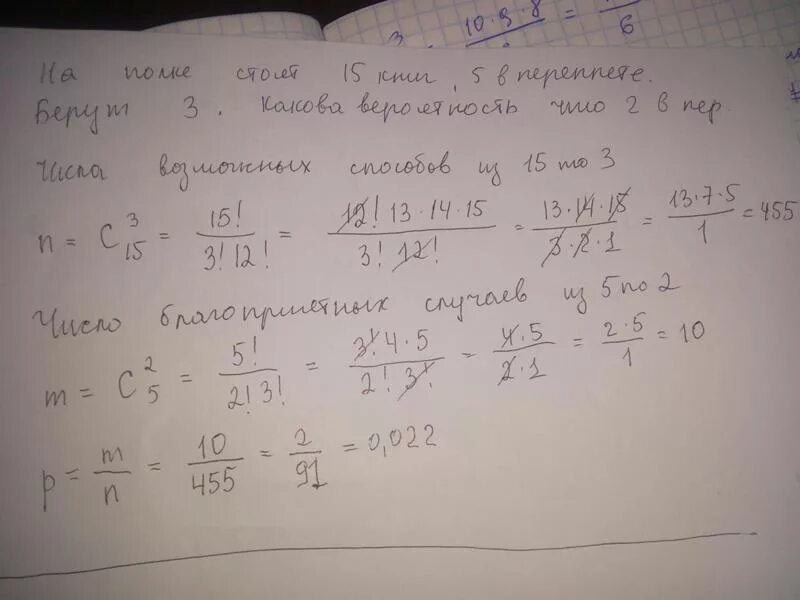 10·9·8 =
6
На полке стоят 15 книг, 5 в переплете.
Берут 3. Какова вероятность что 2 в пер.
Числа возможных способов из 15 по 3
n = C³₁₅ = 15!/(3! 12!) = (12! 13·14·15)/(3! 12!) = (13·14·15)/(3·2·1) = (13·7·5)/1 = 455
Число благоприятных случаев из 5 по 2
m = C²₅ = 5!/(2! 3!) = (3! 4·5)/(2! 3!) = (4·5)/(2·1) = (2·5)/1 = 10
p = m/n = 10/455 = 2/91 = 0,022